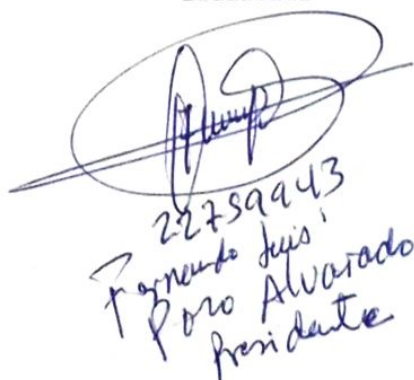 22759943
Fernando Luis
Pozo Alvarado
Presidente